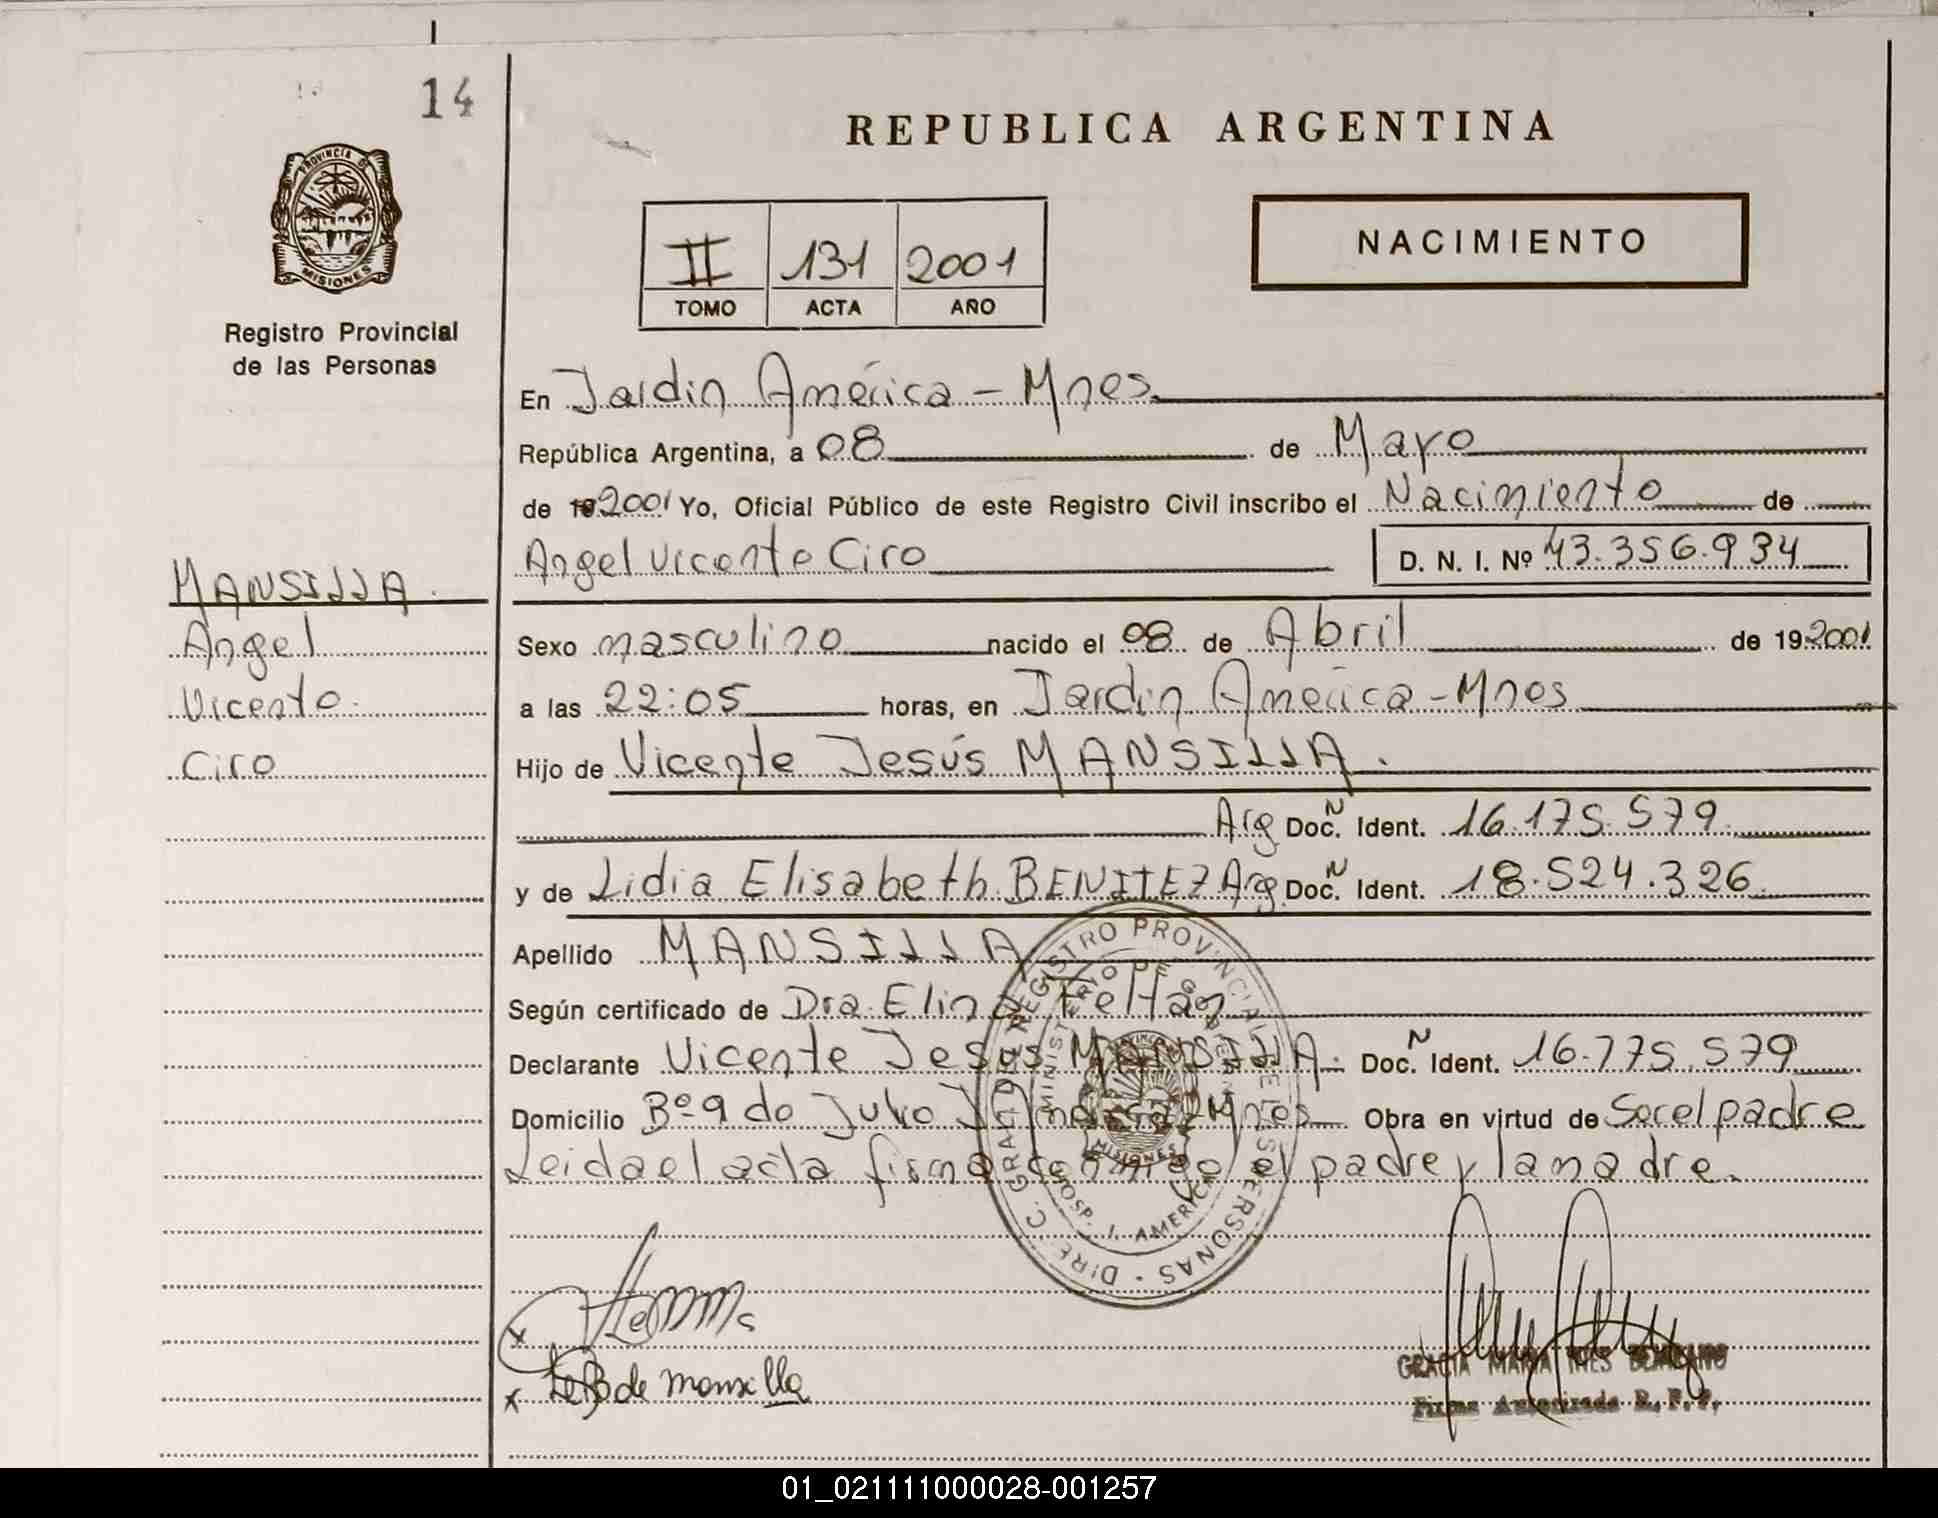 14
REPUBLICA ARGENTINA
PROVINCIA DE
MISIONES
Registro Provincial
de las Personas
II 131 2001
TOMO ACTA AÑO
NACIMIENTO
En Jardin América - Mnes.
República Argentina, a 08 de Mayo
de 19 2001 Yo, Oficial Público de este Registro Civil inscribo el Nacimiento de
Angel Vicente Ciro D. N. I. Nº 43.356.934
MANSILLA.
Angel
Vicente.
Ciro
Sexo masculino nacido el 08 de Abril de 19 2001
a las 22:05 horas, en Jardin América - Mnes
Hijo de Vicente Jesús MANSILLA.
Arg Doc. N Ident. 16.175.579
y de Lidia Elisabeth BENITEZ Arg Doc. N Ident. 18.524.326
Apellido MANSILLA
Según certificado de Dra. Elina Feltan
Declarante Vicente Jesus MANSILLA. Doc. N Ident. 16.775.579
Domicilio Bº 9 de Julio J. America Mnes Obra en virtud de Ser el padre
Leida el acta firma conmigo el padre y la madre.
REGISTRO PROVINCIAL DE LAS PERSONAS
MINISTERIO DE GOBIERNO
MISIONES
HOSP. J. AMERICA
x
x de Mansilla
GRACIA MARIA INES
Firma Autorizada R. P. P.
01_021111000028-001257